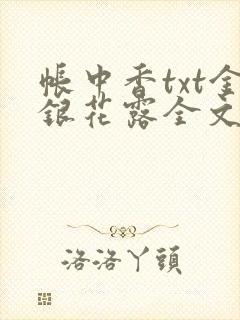 帳中香txt金
銀花露全文
洛洛丫頭